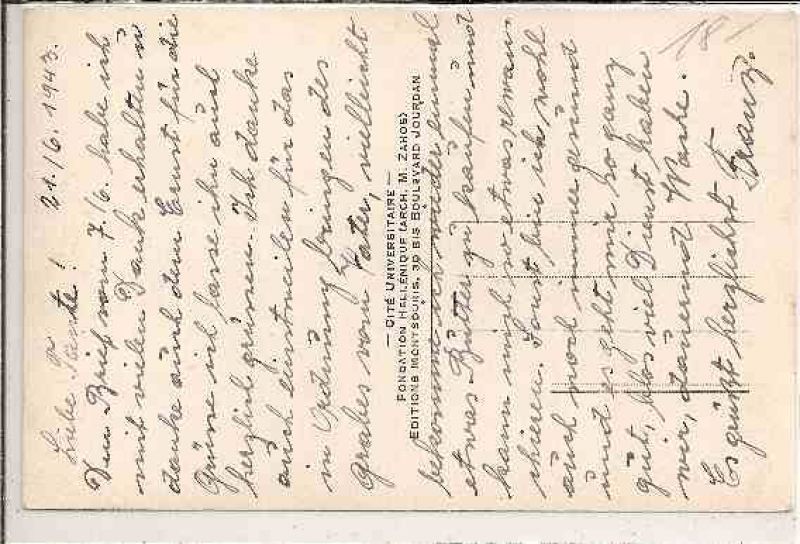 21./6. 1943.
Liebe Tante!
Dein Brief vom 7./6. habe ich
mit vielen Dank erhalten u
danke auch dem Ernst für die
Grüße ich lasse ihn auch
herzlich grüssen. Ich danke
auch einstweilen für das
in Ordnung bringen des
Grabes vom Vater, vielleicht
— CITÉ UNIVERSITAIRE —
FONDATION HELLÉNIQUE (ARCH. M. ZAHOS)
EDITIONS MONTSOURIS, 30 BIS BOULEVARD JOURDAN
bekomme ich wieder einmal
etwas Butter zu kaufen und
kann mich so etwas rewan-
chieren. Sonst bin ich wohl
auch noch immer gesund
und es geht mir so ganz
gut, blos viel Dienst haben
wir, dauernd Wache.
Es grüßt herzlichst Franz.
18 -